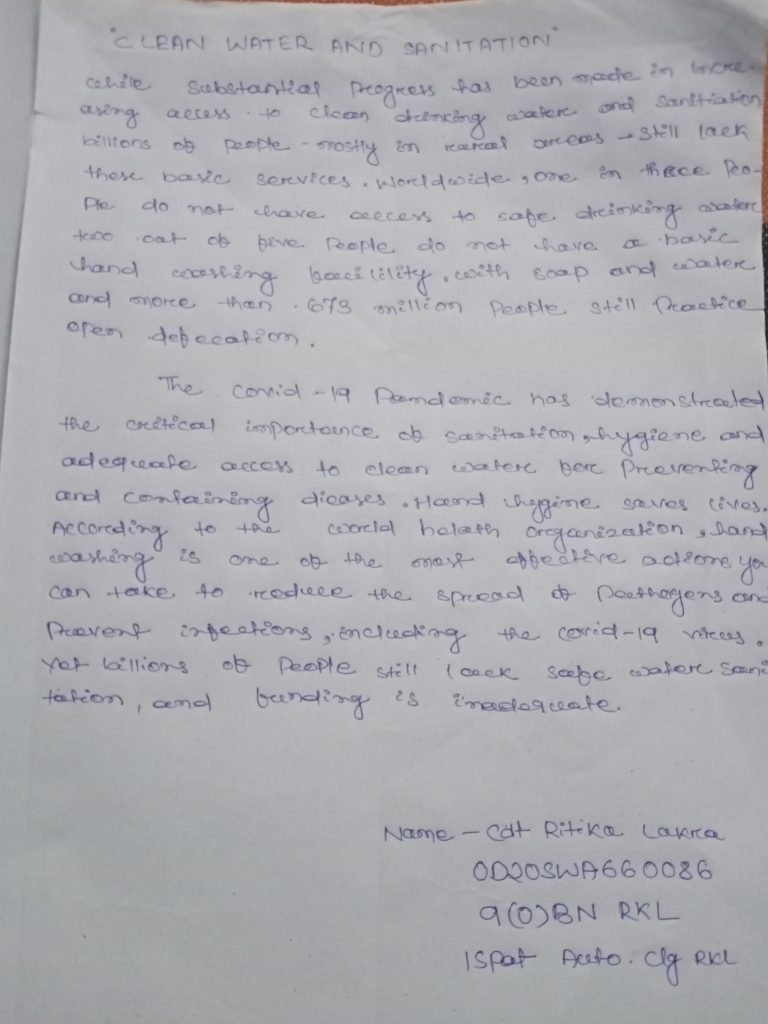 "CLEAN WATER AND SANITATION"
While substantial progress has been made in incre-
asing access to clean drinking water and sanitiation
billions of people - mostly in rural areas - still lack
these basic services. Worldwide, one in three Peo-
Ple do not have access to safe drinking water
two out of five People do not have a basic
hand washing facility, with soap and water
and more than 673 million People still Practice
open defecation.
The Covid-19 Pandemic has demonstrated
the critical importance of sanitation, hygiene and
adequate access to clean water for Preventing
and containing dicases. Hand hygine saves lives.
According to the world helath organization, hand
washing is one of the most effective actions you
can take to reduce the spread of Pathogens and
Prevent infections, including the Covid-19 virus.
Yet billions of People still lack safe water sani
tation, and funding is inadequate.
Name - Cdt Ritika Lakra
OD20SWA660086
9(O)BN RKL
ISPat Auto. Clg RKL